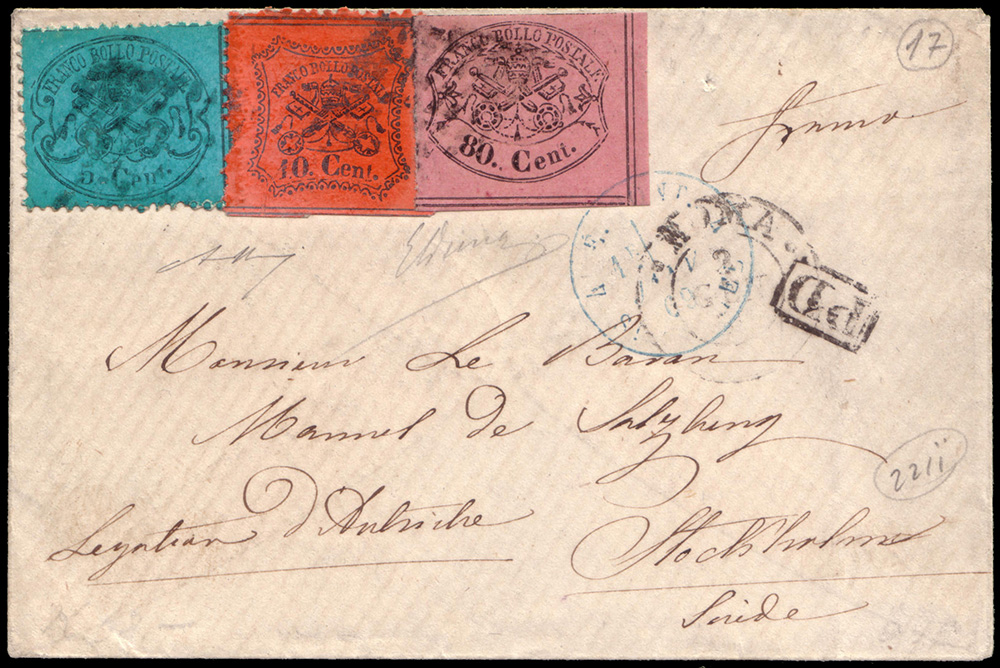 FRANCO BOLLO POSTALE
5 Cent.
FRANCO BOLLO POSTALE
10 Cent.
FRANCO BOLLO POSTALE
80. Cent.
17
franco
ROMA
PD
Monsieur Le Baron
Manuel de Salzberg
Legation d'Autriche
Stockholm
Suède
2211